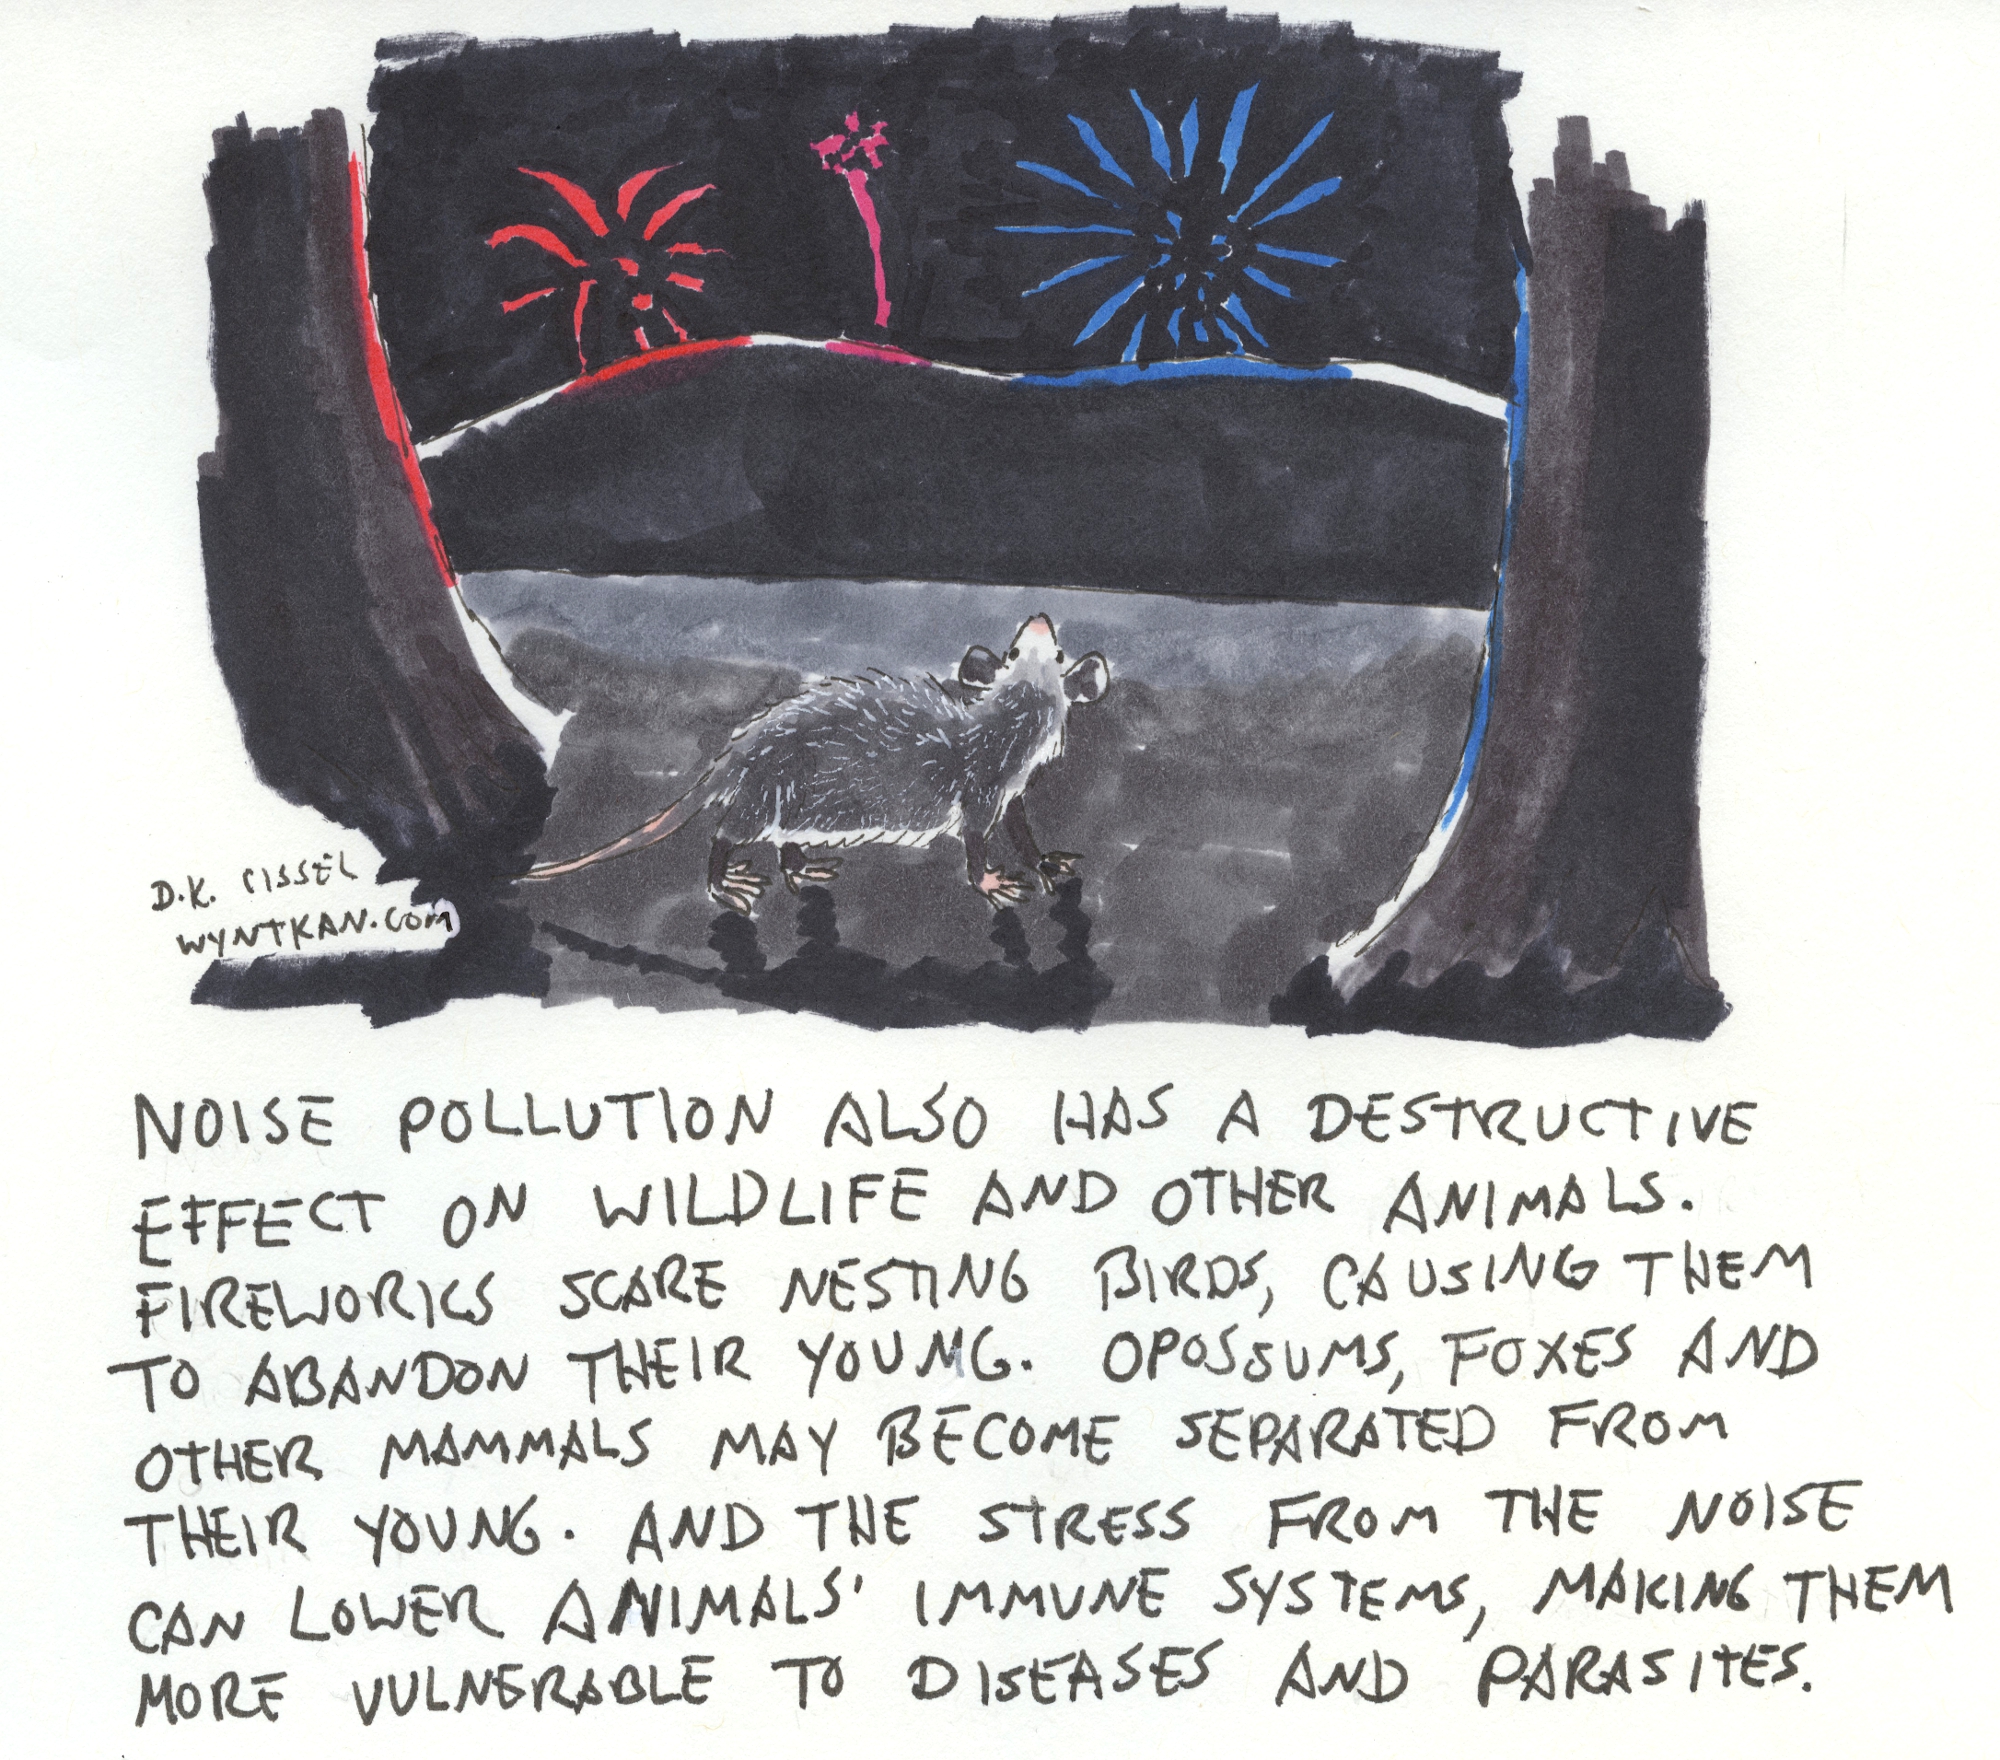 D.K. CISSEL
WYNTKAN.COM
NOISE POLLUTION ALSO HAS A DESTRUCTIVE
EFFECT ON WILDLIFE AND OTHER ANIMALS.
FIREWORKS SCARE NESTING BIRDS, CAUSING THEM
TO ABANDON THEIR YOUNG. OPOSSUMS, FOXES AND
OTHER MAMMALS MAY BECOME SEPARATED FROM
THEIR YOUNG. AND THE STRESS FROM THE NOISE
CAN LOWER ANIMALS' IMMUNE SYSTEMS, MAKING THEM
MORE VULNERABLE TO DISEASES AND PARASITES.